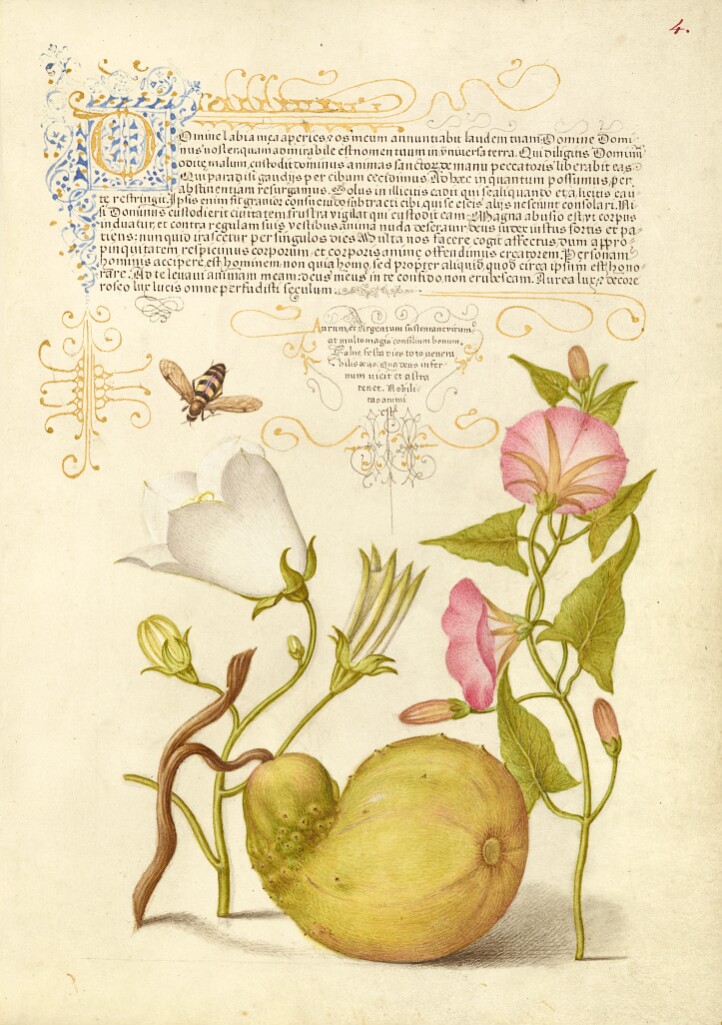 4.
Domine labia mea aperies: os meum annuntiabit laudem tuam. Domine Domi-
nus noster, quam admirabile est nomen tuum in universa terra. Qui diligitis Dominum
odite malum, custodit dominus animas sanctor. de manu peccatoris liberabit eas.
Qui paradisi gaudijs per cibum cecidimus. Ad hæc in quantum possumus, per
abstinentiam resurgamus. Solus in illicitis cadit qui se aliquando et a licitis cau-
te restringit. Ipsis enim fit gravior consuetudo subtracti cibi, qui se escis alijs nesciunt consolari. Ni-
si Dominus custodierit civitatem, frustra vigilat qui custodit eam. Magna abusio est, ut corpus
induatur, et contra regulam suis vestibus anima nuda deseratur. deus iudex iustus fortis et pa-
tiens: nunquid irascetur per singulos dies. Multa nos facere cogit affectus, dum appro-
pinquitatem respicimus corporum, et corporis animæ offendimus creatorem. Personam
hominis accipere est hominem, non quia homo, sed propter aliquid, quod circa ipsum est hono-
rare. Ad te levavi animam meam: deus meus in te confido, non erubescam. Aurea luce et decore
roseo lux lucis omne perfudisti seculum.
Aurum, et Argentum sustentamentum:
at multo magis consilium bonum.
Salve festa dies toto venera-
bilis ævo. Qua deus infer-
num vicit et astra
tenet. Nobili-
tas animi
est.